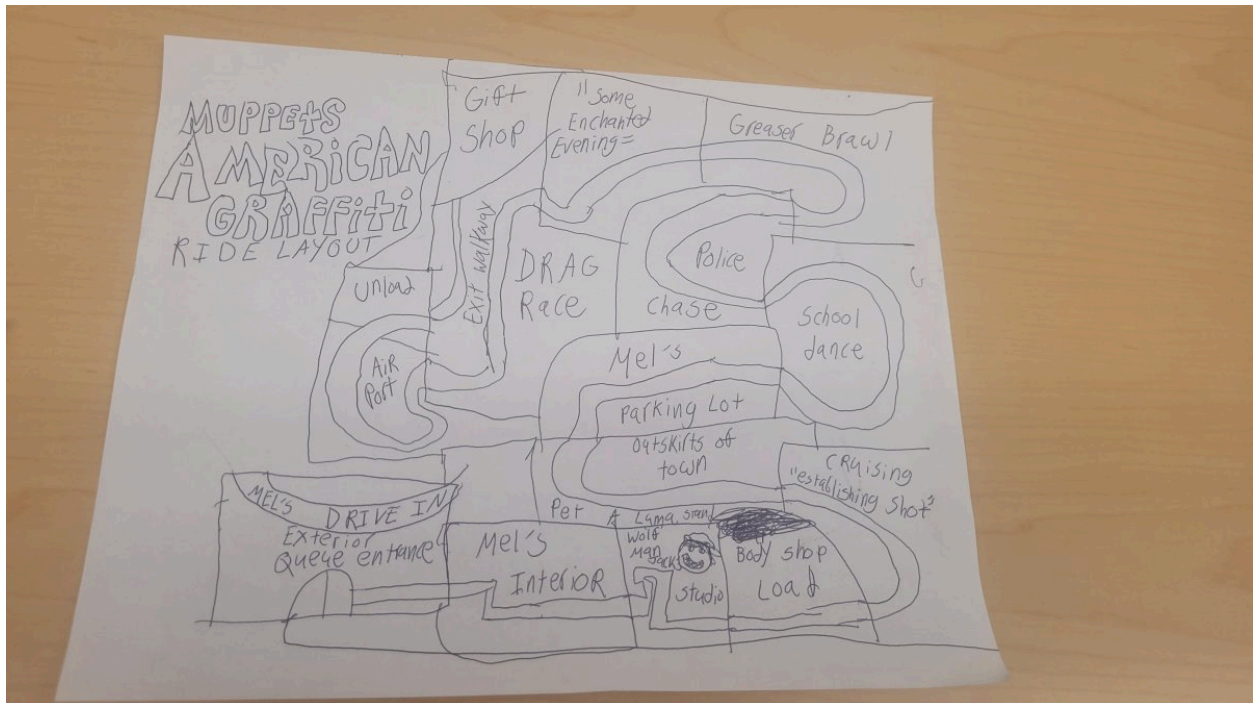 MUPPETS
AMERICAN
GRAFFiti
RIDE LAYOUT
Gift
Shop
"Some
Enchanted
Evening=
Greaser Brawl
Unload
Exit walkway
DRAG
Race
Police
Chase
School
dance
AiR
Port
Mel's
Parking Lot
Outskirts of
town
CRuising
"establishing Shot"
MEL'S DRIVE IN
Exterior
Queue entrance
Mel's
InterioR
Pet A Lyma Stand
Wolf
Man
Jack
Studio
Body shop
Load